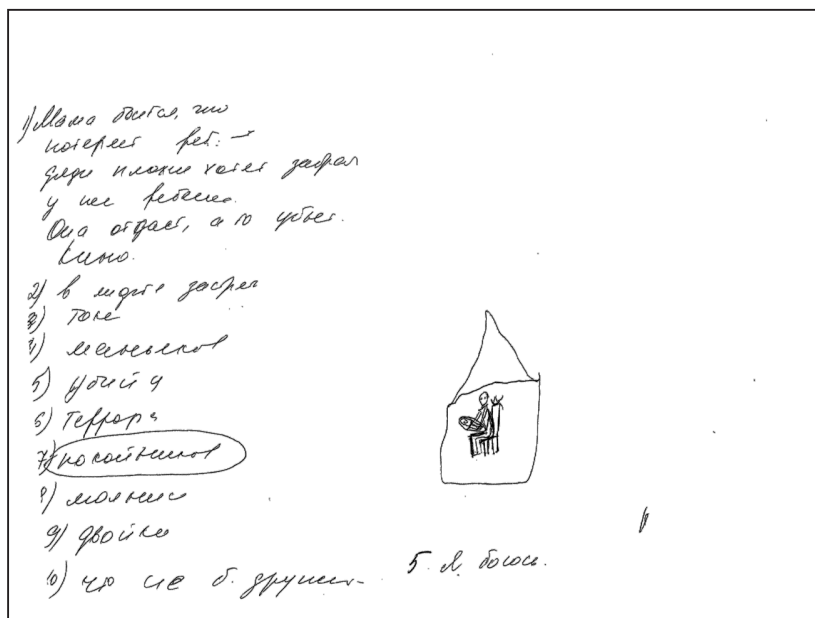 1) Мама боится, что
потеряет реб.
дяди плохие хотят забрал
у нее ребенка.
Она отдаст, а то убьет.
Кино.
2) в лифте застрял
3) Тоне
4) маньяков
5) Убийц
6) Террора
7) покойников
8) молнии
9) двойки
10) что не б. дружит
5. Я боюсь.